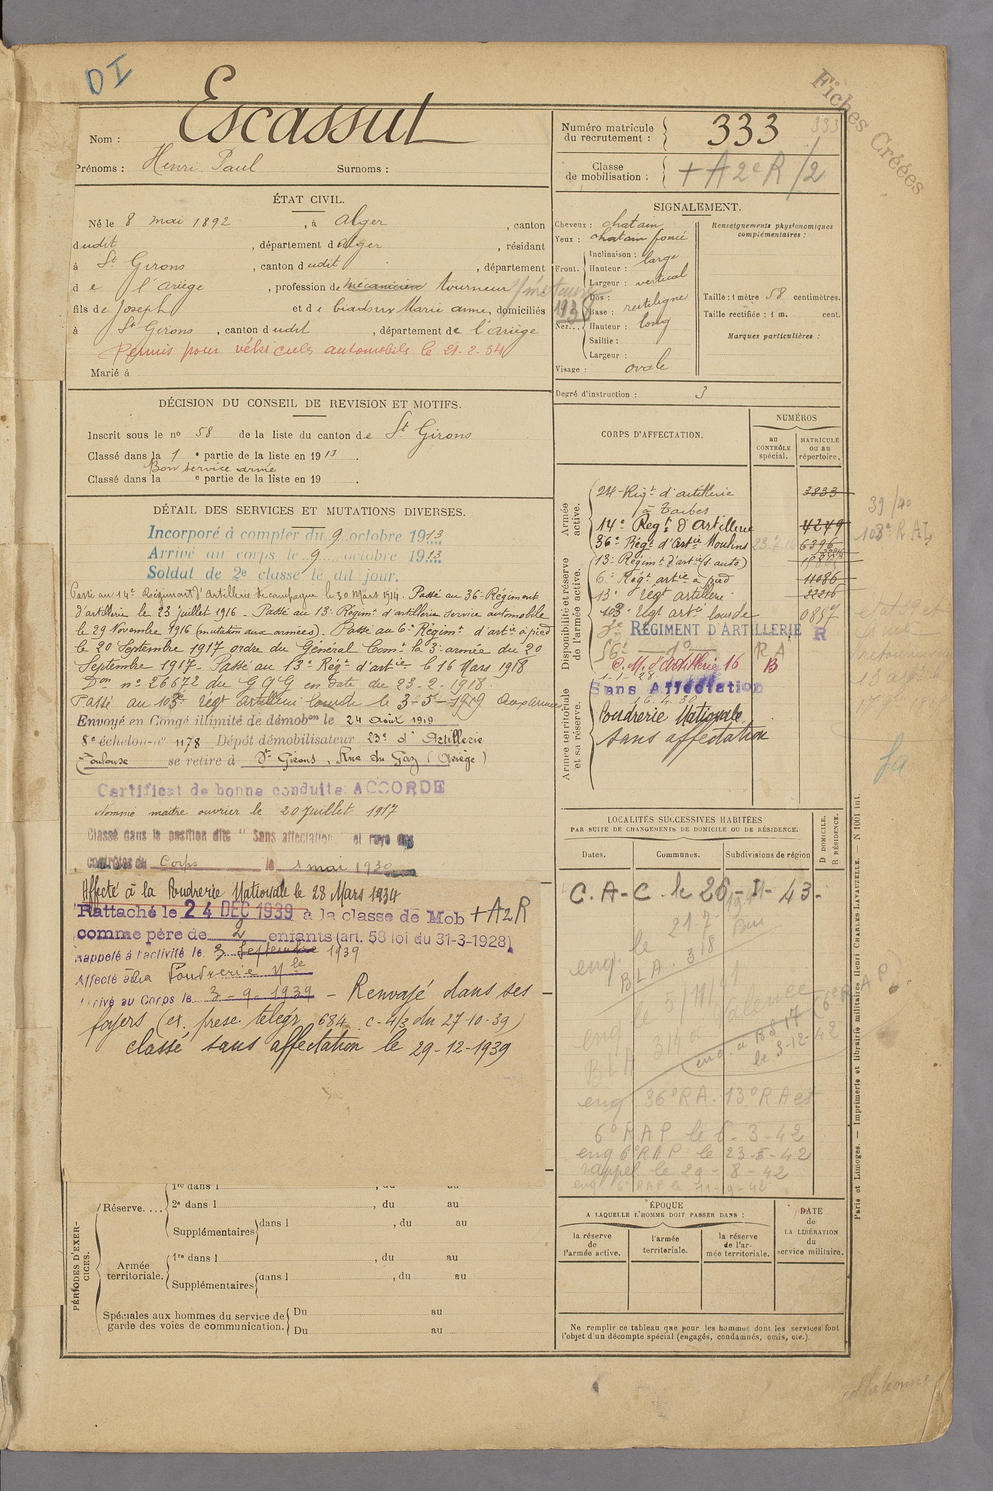 DI
Fiches Créées
Nom : Escassut
Prénoms : Henri Paul Surnoms :
Numéro matricule du recrutement : 333
333
Classe de mobilisation : + A 2e R/2
ÉTAT CIVIL.
Né le 8 mai 1892, à Alger, canton
dudit, département d'Alger, résidant
à St Girons, canton dudit, département
de l'Ariège, profession de mécanicien tourneur
1938
fils de Joseph et de Marie anne, domiciliés
à St Girons, canton dudit, département de l'Ariège
Permis pour véhicules automobile le 21-2-34
Marié à
SIGNALEMENT.
Cheveux : chatain
Yeux : chatain foncé
Front. Inclinaison : large
Hauteur :
Largeur : vertical
Nez. Dos :
Base : rectiligne
Hauteur : long
Saillie :
Largeur :
Visage : ovale
Renseignements physionomiques complémentaires :
Taille : 1 mètre 58 centimètres.
Taille rectifiée : 1 m. cent.
Marques particulières :
Degré d'instruction : 3
DÉCISION DU CONSEIL DE REVISION ET MOTIFS.
Inscrit sous le no 58 de la liste du canton de St Girons
Classé dans la 1 e partie de la liste en 1913.
Bon service armé
Classé dans la e partie de la liste en 19
DÉTAIL DES SERVICES ET MUTATIONS DIVERSES.
Incorporé à compter du 9 octobre 1913
Arrivé au corps le 9 octobre 1913
Soldat de 2e classe le dit jour.
Passé au 14e Régiment d'Artillerie de campagne le 30 Mars 1914. Passé au 36e Régiment
d'artillerie le 23 juillet 1916 - Passé au 13e Régimt d'artillerie service automobile
le 29 Novembre 1916 (mutation aux armées). Passé au 6e Régimt d'artie à pied
le 20 Septembre 1917 ordre du Général Commt la 3e armée du 20
Septembre 1917. Passé au 13e Régt d'artie le 16 Mars 1918
Don no 26672 du GQG en date du 23-2-1918.
Passé au 103e Régt artillerie lourde le 3-5-1919
Envoyé en Congé illimité de démobon le 24 Août 1919
8e échelon no 1178 Dépôt démobilisateur 23e d'Artillerie
Toulouse se retire à St Girons, Rue du Gaz (Ariège)
Certificat de bonne conduite ACCORDÉ
Nommé maitre ouvrier le 20 juillet 1917
Classé dans la position dite "Sans affectation" et rayé des
contrôles du Corps le 1 mai 1930
Affecté à la Poudrerie Nationale le 28 Mars 1934
Rattaché le 24 DEC 1939 à la classe de Mob + A2R
comme père de 2 enfants (art. 58 loi du 31-3-1928)
Rappelé à l'activité le 3 Septembre 1939
Affecté à la Poudrerie Nle
Arrivé au Corps le 3-9-1939 - Renvoyé dans ses
foyers (ex. presc. telegr. 684 c-4/3 du 27-10-39)
classé sans affectation le 29-12-1939
CORPS D'AFFECTATION.
NUMÉROS
au CONTRÔLE spécial.
MATRICULE ou au répertoire.
Armée active.
24e Régt d'artillerie à Tarbes 3833
14e Régt d'Artillerie 4249
36e Régt d'Artie Moulins 6396
Disponibilité et réserve de l'armée active.
13e Régimt d'artie (s. auto)
6e Régt artie à pied 11086
13e Régt artillerie 22216
103e Rgt artie lourde 0857
RÉGIMENT D'ARTILLERIE R
R A
C. M. d'artillerie 16 B
1-1-28
Armée territoriale et sa réserve.
Sans Affectation
Poudrerie Nationale
sans affectation
39/40
103e RAL
LOCALITÉS SUCCESSIVES HABITÉES
PAR SUITE DE CHANGEMENTS DE DOMICILE OU DE RÉSIDENCE.
Dates. Communes. Subdivisions de région
D DOMICILE. R RÉSIDENCE.
C.A-C. le 26-I-43-
eng 36e RA. 13e RA et
6e RAP le 6-3-42
eng 6e RAP le 23-5-42
rappel le 29-8-42
eng 6e RAP le 11-9-42
PÉRIODES D'EXERCICES.
Réserve....
1re dans l , du au
2e dans l , du au
Supplémentaires dans l , du au
Armée territoriale.
1re dans l , du au
Supplémentaires dans l , du au
Spéciales aux hommes du service de garde des voies de communication.
Du au
Du au
ÉPOQUE
A LAQUELLE L'HOMME DOIT PASSER DANS :
la réserve de l'armée active.
l'armée territoriale.
la réserve de l'armée territoriale.
DATE de LA LIBÉRATION du service militaire.
Ne remplir ce tableau que pour les hommes dont les services font l'objet d'un décompte spécial (engagés, condamnés, omis, etc.).
Paris et Limoges. — Imprimerie et librairie militaires Henri CHARLES-LAVAUZELLE. — N 1001 int.